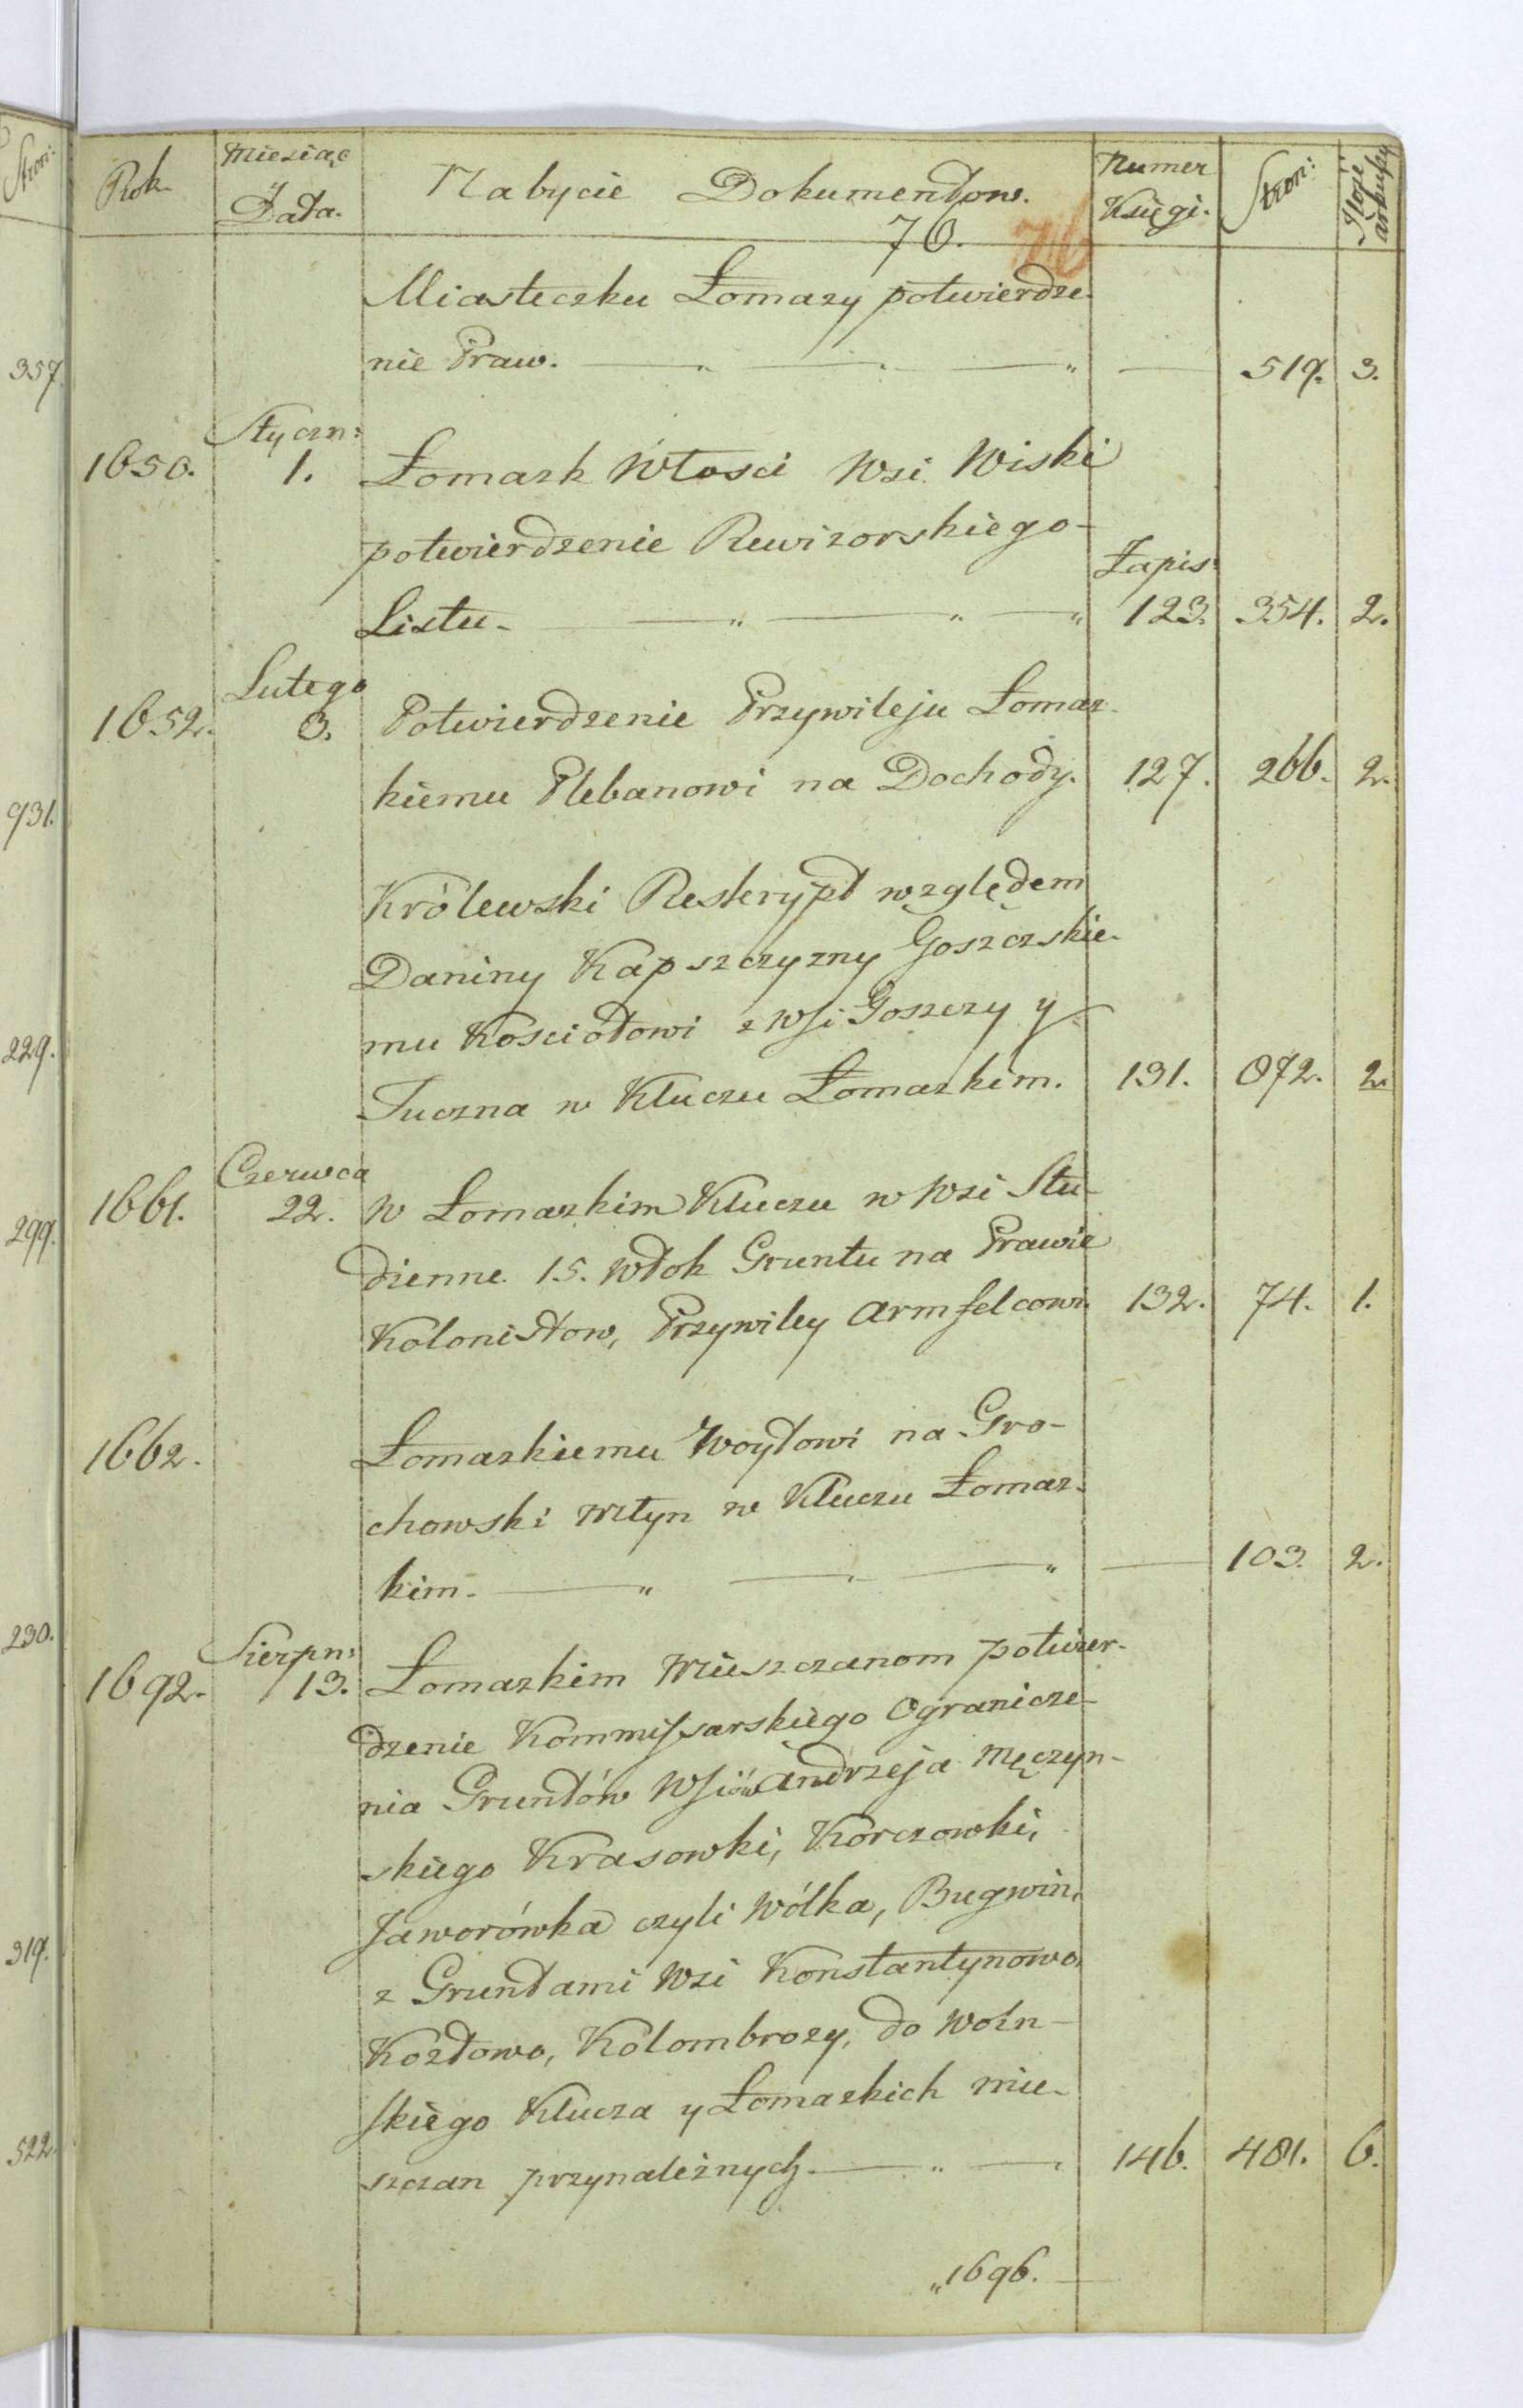 Rok Miesiąc Nabycie Dokumentow. Numer Stron: Ilość
Data. 76. 76 Księgi. arkuszy
Miasteczku Łomazy potwierdze-
nie Praw. — „ — „ — „ — 519. 3.
Styczn:
1650. 1. Łomazk Włosci Wsi Wiski
potwierdzenie Rewizorskiego-
Zapis:
Listu- — „ — „ — „ 123. 354. 2.
Lutego
1652. 3. Potwierdzenie Przywileju Łomaz-
kiemu Plebanowi na Dochody. 127. 266. 2.
Królewski Reskrypt względem
Daniny Kapszczyzny Goszczskie-
mu Kosciołowi z Wsi Goszczy y
Tuczna w Kluczu Łomazkim. 131. 872. 2.
Czerwca
1661. 22. W Łomazkim Kluczu w Wsi Stu-
dienne 15. Włok Gruntu na Prawie
Kolonistow, Przywiley Armfelcowi. 132. 74. 1.
1662. Łomazkiemu Woytowi na Gro-
chowski Młyn w Kluczu Łomaz-
kim- — „ — „ — „ — 103. 2.
Sierpn:
1692. 13. Łomazkim Mieszczanom potwier-
dzenie Kommissarskiego Ogranicze-
nia Gruntów Wsiów Andrzeja Męczyn-
skiego Krasowki, Korczowki,
Jaworówka czyli Wólka, Bugwin,
z Gruntami Wsi Konstantynowo,
Kozłowo, Kolombrozy, do Woin-
skiego Klucza y Łomazkich mie-
szczan przynaleznych. — „ — . 146. 481. 6.
„1696. —
357.
931.
229.
299.
230.
319.
522.
Stron: